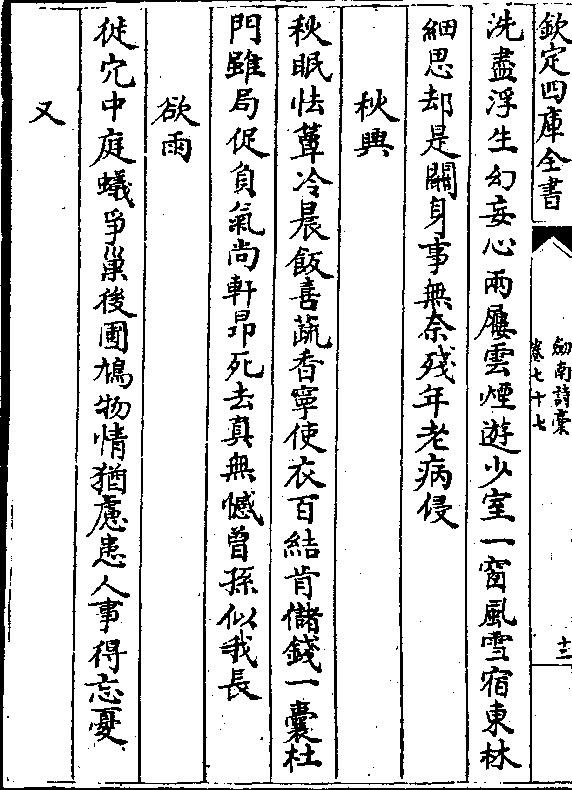 欽定四庫全書
劍南詩稾
卷七十七
十二
洗盡浮生幻妄心兩屨雲煙遊少室一窗風雪宿東林
細思却是關身事無奈殘年老病侵
秋興
秋眠怯簟冷晨飯喜蔬香寧使衣百結肯儲錢一囊杜
門雖局促負氣尚軒昻死去真無憾曾孫似我長
欲雨
徙穴中庭蟻爭巢後圃鳩物情猶慮患人事得忘憂
又